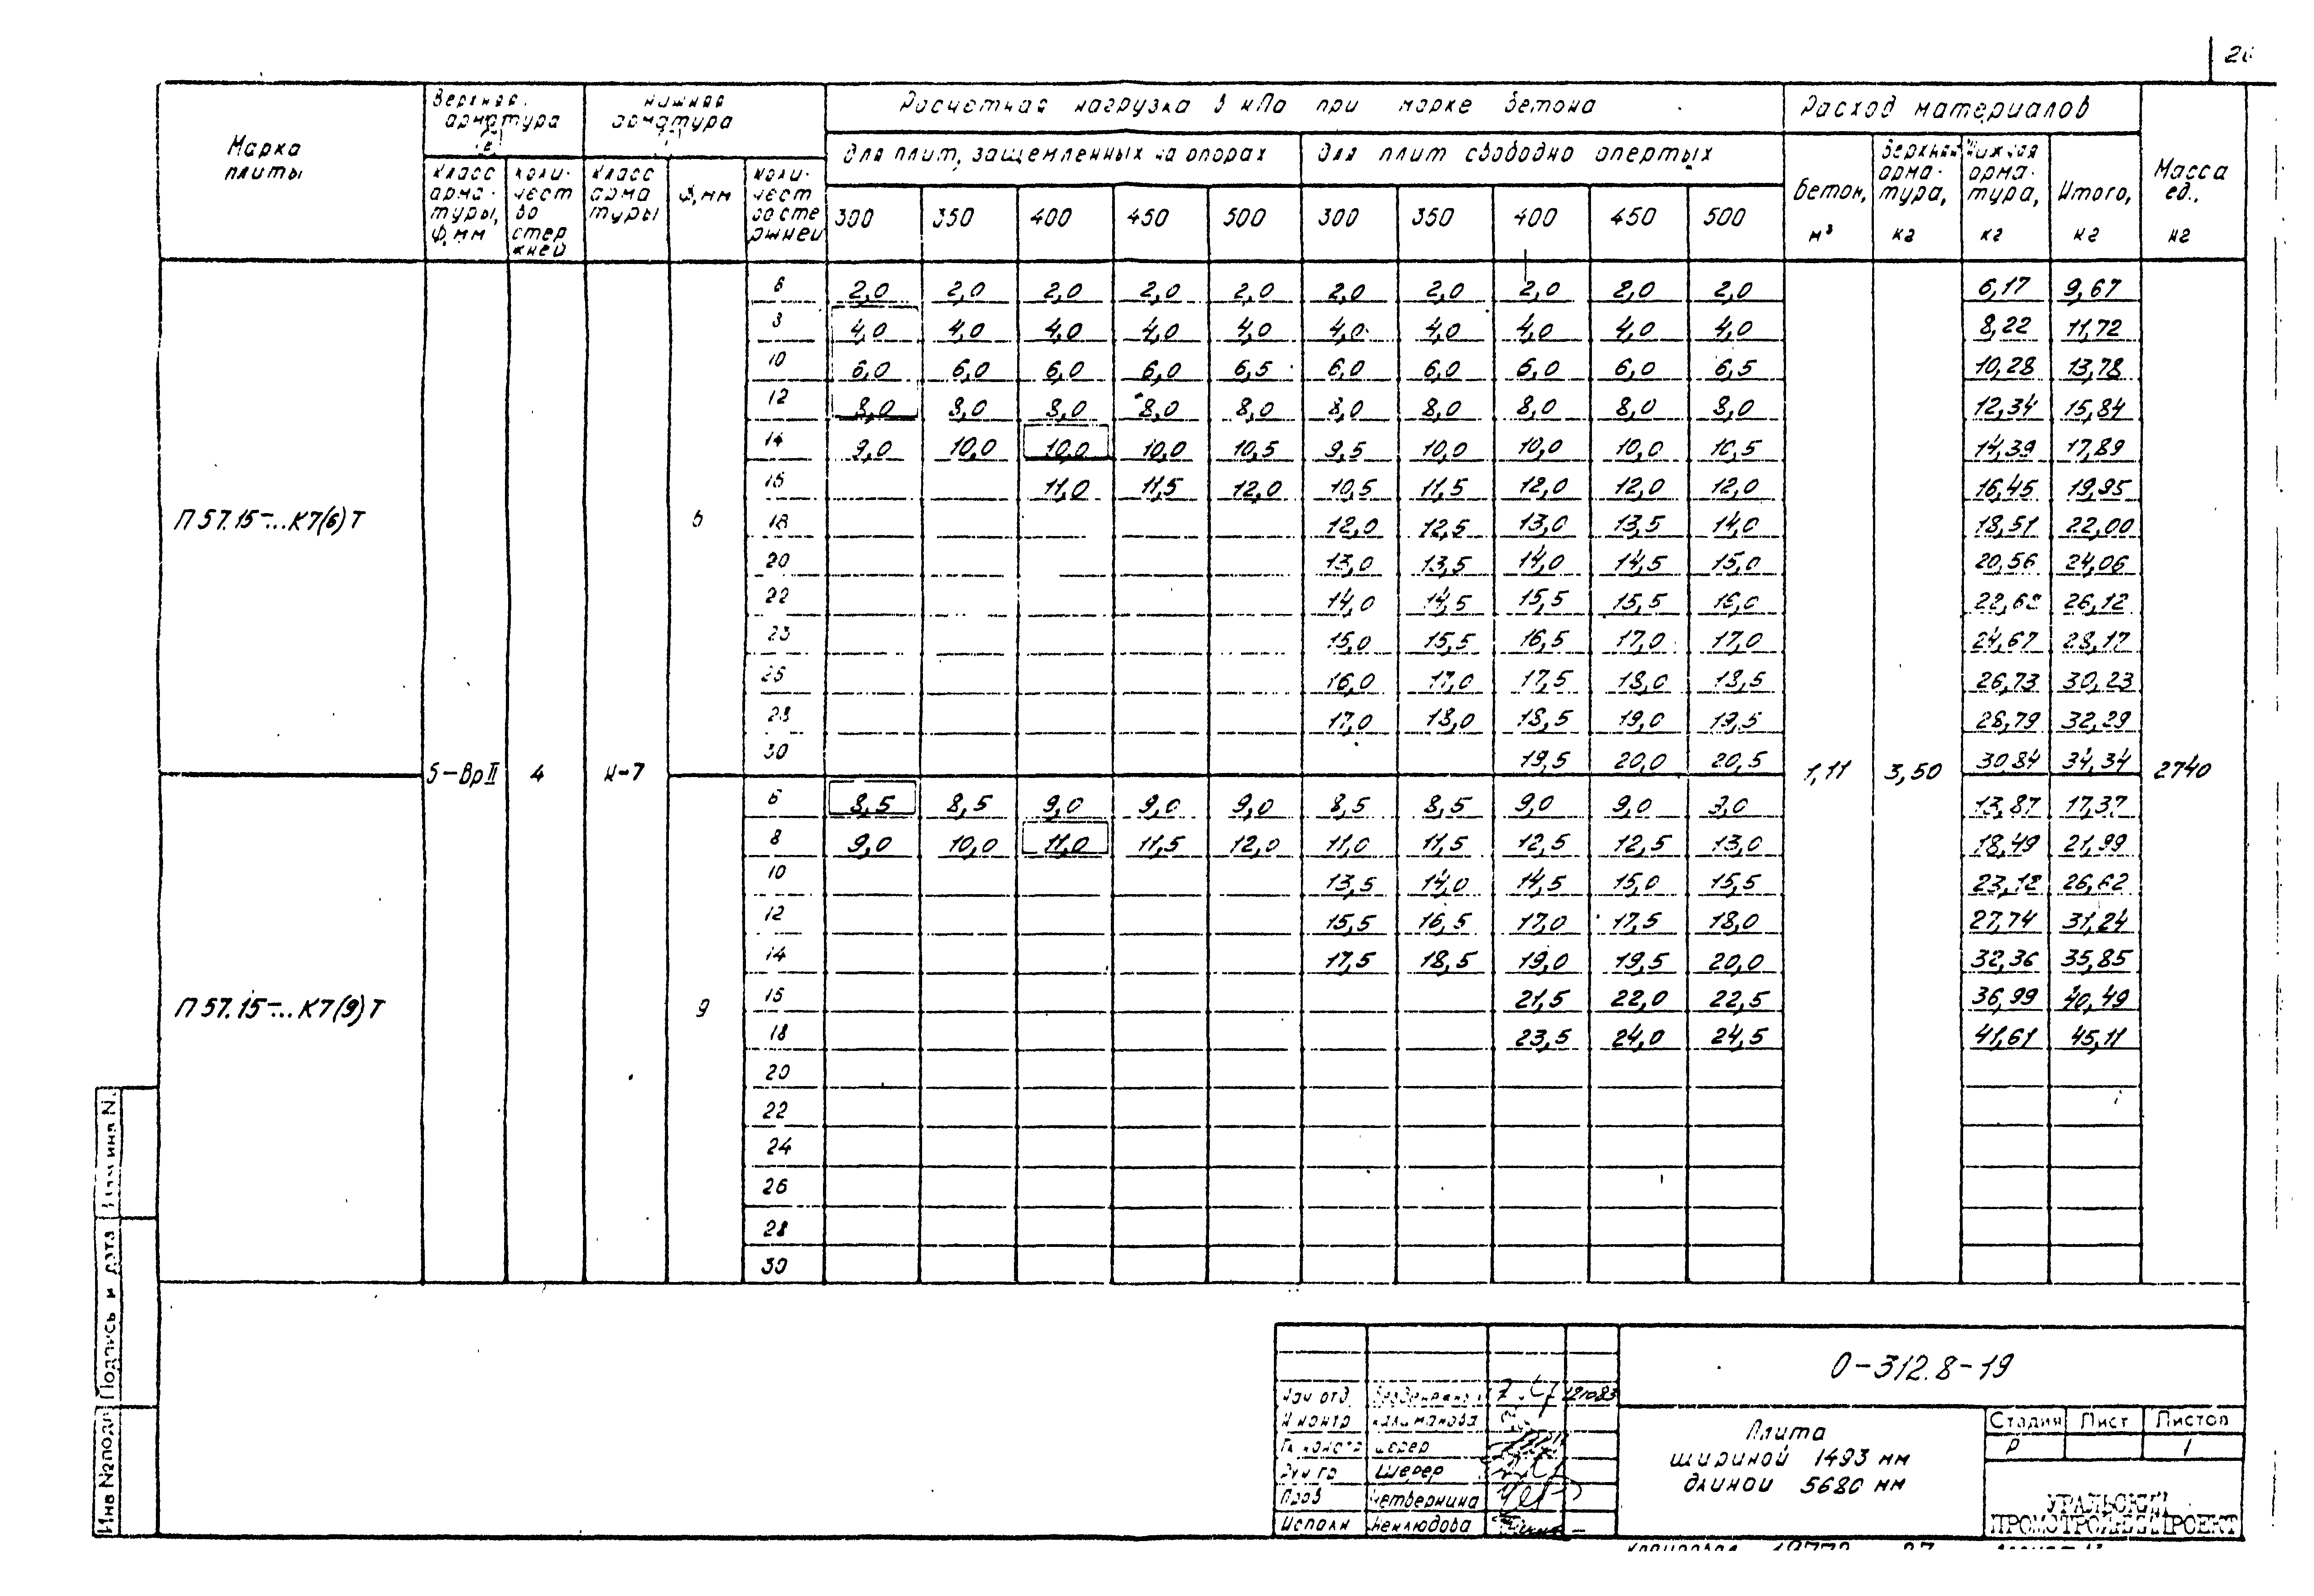 Марка плиты
Верхняя арматура
Нижняя арматура
Расчетная нагрузка в кПа при марке бетона
Расход материалов
Масса ед., кг
Класс арматуры, Ф, мм
Количество стержней
Класс арматуры
Ф, мм
Количество стержней
Для плит, защемленных на опорах
Для плит свободно опертых
Бетон, м³
Верхняя арматура, кг
Нижняя арматура, кг
Итого, кг
300 350 400 450 500 300 350 400 450 500
6 2,0 2,0 2,0 2,0 2,0 2,0 2,0 2,0 2,0 2,0 6,17 9,67
8 4,0 4,0 4,0 4,0 4,0 4,0 4,0 4,0 4,0 4,0 8,22 11,72
10 6,0 6,0 6,0 6,0 6,5 6,0 6,0 6,0 6,0 6,5 10,28 13,78
12 8,0 8,0 8,0 8,0 8,0 8,0 8,0 8,0 8,0 8,0 12,34 15,84
14 9,0 10,0 10,0 10,0 10,5 9,5 10,0 10,0 10,0 10,5 14,39 17,89
16 11,0 11,5 12,0 10,5 11,5 12,0 12,0 12,0 16,45 19,95
П 57.15-...К7(6)Т 6 18 12,0 12,5 13,0 13,5 14,0 18,51 22,00
20 13,0 13,5 14,0 14,5 15,0 20,56 24,06
22 14,0 14,5 15,5 15,5 16,0 26,12
15,0 15,5 16,5 17,0 17,0 24,67 28,17
16,0 17,0 17,5 18,0 18,5 26,73 30,23
28 17,0 18,0 18,5 19,0 19,5 28,79 32,29
30 19,5 20,0 20,5 30,84 34,34
5-ВрII 4 К-7 1,11 3,50 2740
6 8,5 8,5 9,0 9,0 9,0 8,5 8,5 9,0 9,0 9,0 13,87 17,37
8 9,0 10,0 11,0 11,5 12,0 11,0 11,5 12,5 12,5 13,0 18,49 21,99
10 13,5 14,0 14,5 15,0 15,5 23,12 26,62
12 15,5 16,5 17,0 17,5 18,0 27,74 31,24
14 17,5 18,5 19,0 19,5 20,0 32,36 35,85
П 57.15-...К7(9)Т 9 16 21,5 22,0 22,5 36,99 40,49
18 23,5 24,0 24,5 41,61 45,11
20
22
24
26
28
30
Взам инв N
Подпись и дата
Инв № подл
0-312.8-19
Нач отд 121083
Н контр Калиманова
Гл констр Шерер
Рук гр Шерер
Пров Четвернина
Исполн Неклюдова
Плита
шириной 1493 мм
длиной 5680 мм
Стадия Лист Листов
Р 1
УРАЛЬСКИЙ
ПРОМСТРОЙНИИПРОЕКТ